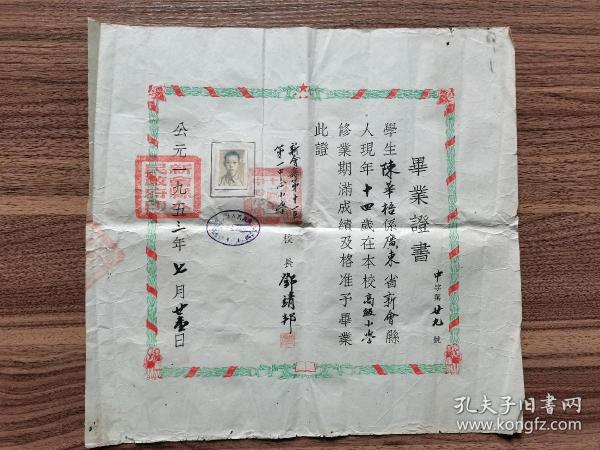 畢業證書
中字第廿九號
學生陳華棓係廣東省新會縣
人現年十四歲在本校高級小學
修業期滿成績及格准予畢業
此證
新會縣第十一區
第一中心小學
校長 鄧靖邦
公元一九五三年七月廿五日
孔夫子旧书网
www.kongfz.com